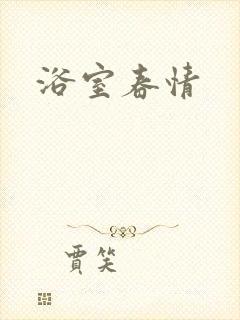 浴室春情
賈笑